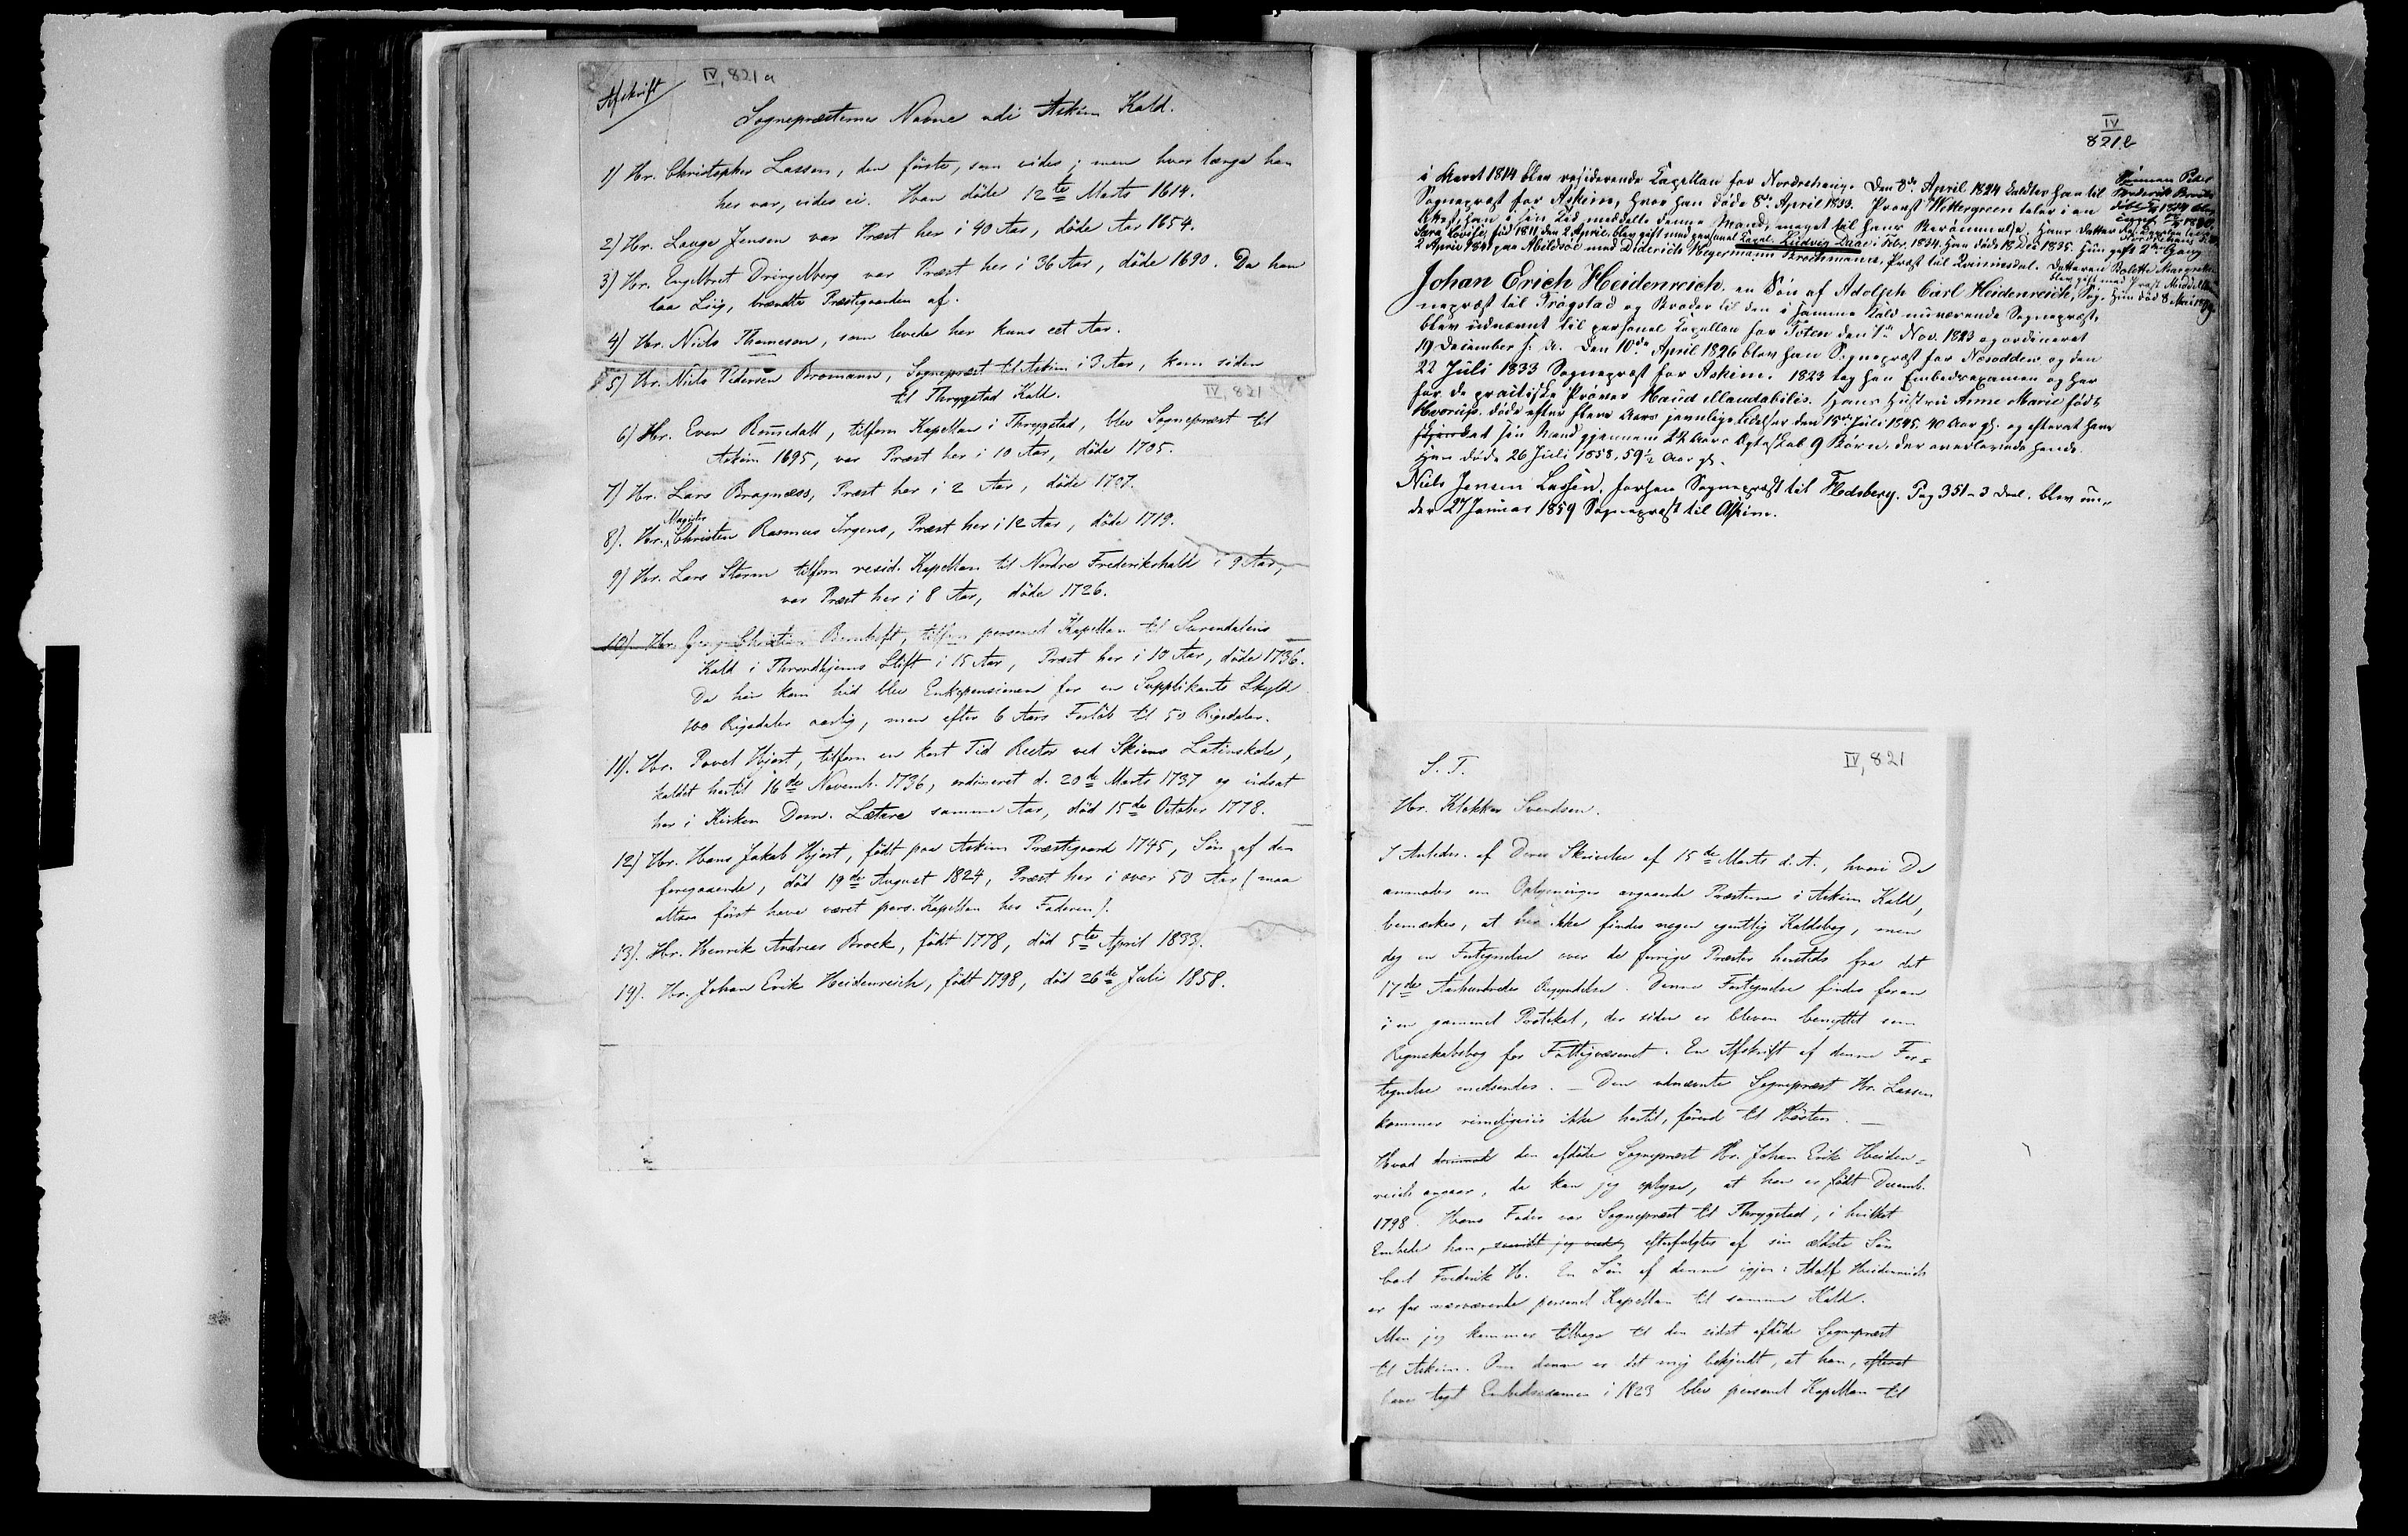 Afskrift
IV, 821 a
Sognepræsternes Navne udi Askim Kald.
1) Hr. Christopher Lassen, den første, som vides; men hvor længe han
her var, vides ei. Han døde 12te Marts 1614.
2) Hr. Lauge Jensen var Præst her i 40 Aar, døde Aar 1654.
3) Hr. Engelbret Dringelberg var Præst her i 36 Aar, døde 1690. Da han
laa Liig, brændte Præstegaarden af.
4) Hr. Niels Thomeson, som levede her kuns eet Aar.
5) Hr. Niels Pedersen Bromann, Sognepræst til Askim i 3 Aar, kom siden
til Thrygstad Kald.
IV, 821
6) Hr. Even Ramsdall, tilforn Kapellan i Thrygstad, blev Sognepræst til
Askim 1695, var Præst her i 10 Aar, døde 1705.
7) Hr. Lars Bragnæss, Præst her i 2 Aar, døde 1707.
8). Hr. Magister Christen Rasmus Irgens, Præst her i 12 Aar, døde 1719.
9) Hr. Lars Storm tilforn resid. Kapellan til Nordre Frederikshald i 9 Aar,
var Præst her i 8 Aar, døde 1726.
10). Hr. Georg Christian Bernhoft, tilforn personel Kapellan til Surendalens
Kald i Throndhjems Stift i 15 Aar, Præst her i 10 Aar, døde 1736.
Da han kom hid blev Enkepensionen for en Supplikants Skyld
100 Rigsdaler aarlig, men efter 6 Aars Forløb til 50 Rigsdaler.
11). Hr. Povel Hjort, tilforn en kort Tid Rector ved Skiens Latinskole,
kaldet hertil 16de Novemb. 1736, ordineret d. 20de Marts 1737 og indsat
her i Kirken Dom. Lætare samme Aar, død 15de October 1778.
12) Hr. Hans Jakob Hjort, født paa Askim Præstegaard 1745, Søn af den
foregaaende, død 19de August 1824, Præst her i over 50 Aar (maa
altsaa først have været pers. Kapellan hos Faderen).
13). Hr. Henrik Andreas Brock, født 1778, død 5te April 1833.
14). Hr. Johan Erik Heidenreich, født 1798, død 26de Juli 1858.
IV
821 b
i Maret 1814 blev residerende Capellan for Nordrehaug. Den 8de April 1824 kaldtes han til
Sognepræst for Askim, hvor han døde 8de April 1833. Provst Wettergreen taler i en
2 April 1841 paa Abildsø med Diderich Hegermann Brochmann, Præst til Qvinnesdal.
Johan Erich Heidenreich, en Søn af Adolph Carl Heidenreich, Sog-
nepræst til Trøgstad og Broder til den i samme Kald nuværende Sognepræst,
blev udnævnt til personel Capellan for Toten den 1te Nov. 1823 og ordineret
19 December s. A. Den 10de April 1826 blev han Sognepræst for Næsodden og den
22 Juli 1833 Sognepræst for Askim. 1823 tog han Embedsexamen og har
for de practiske Prøver Haud illaudabilis. Hans Hustru Anne Marie født
Heorup. døde efter flere Aars jevnlige Lidelser den 15de Juli 1845. 40 Aar gl. og efterat have
skjenket sin Mand gjennem 24 Aars Ægteskab 9 Børn, der overlevede hende.
Han døde 26 Juli 1858, 59½ Aar gl.
Niels Jensen Lassen, forhen Sognepræst til Flodsberg. Pag 351 - 3 Deel. blev un-
der 27 Januar 1859 Sognepræst til Askim.
IV, 821
S. T.
Hr. Klokker Svendsen.
I Anledn. af Deres Skrivelse af 15de Marts d. A., hvori De
anmoder om Oplysninger angaaende Præsterne i Askim Kald,
bemærkes, at her ikke findes nogen egentlig Kaldsbog, men
dog en Fortegnelse over de forrige Præster hersteds fra det
17de Aarhundredes Begyndelse. Denne Fortegnelse findes foran
i en gammel Protokol, der siden er bleven benyttet som
Regnskabsbog for Fattigvæsenet. En Afskrift af denne For-
tegnelse medsendes. – Den udnævnte Sognepræst Hr. Lassen
kommer rimeligviis ikke hertil, førend til Høsten. –
Hvad derimod den afdøde Sognepræst Hr. Johan Erik Heiden-
reich angaar, da kan jeg oplyse, at han er født Decemb.
1798. Hans Fader var Sognepræst til Thrygstad, i hvilket
Embede han, saavidt jeg veed, efterfulgtes af sin ældste Søn
Carl Frederik H. En Søn af denne igjen: Adolf Heidenreich
er for nærværende personel Kapellan til samme Kald.
Men jeg kommer tilbage til den sidst afdøde Sognepræst
til Askim. Om denne er det mig bekjendt, at han, efterat
have tagt Embedsexamen i 1823 blev personel Kapellan til